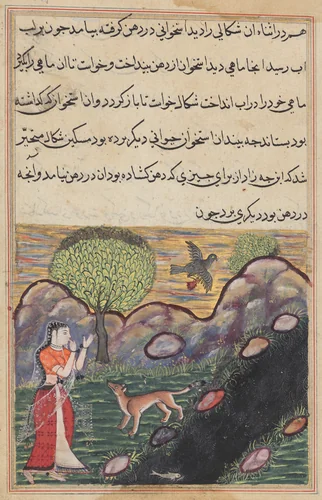 هم در اشاء ان شکالی را دید استخوانی در دهن کرفته بیامد چون بر لب
اب رسید انجا ماهی دید استخوان از دهن بینداخت و خواست تا ان ماهی را بکیرد
ماهی خود را در اب انداخت شکال خواست تا باز کردد و ان استخوان که کذاشته
بود بستاند چه بیند ان استخوان حیوانی دیکر برده بود مسکین شکال متحیر
شد که این چه زاد از برای چیزی که دهن کشاده بود ان در دهن نیامد و انچه
در دهن بود دیکری برد چون